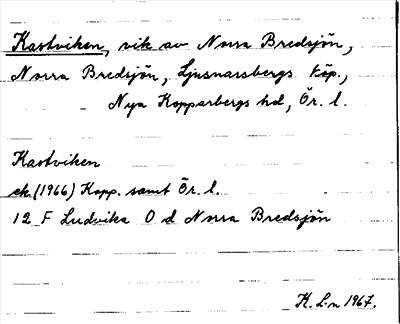 Kastviken, vik av Norra Bredsjön,
Norra Bredsjön, Ljusnarsbergs köp.,
Nya Kopparbergs hd, Ör. l.
Kastviken
ek. (1966) Kopp. samt Ör. l.
12 F Ludvika O d Norra Bredsjön
K. L-n 1967.